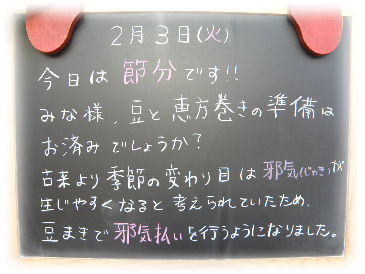 2月3日(火)
今日は節分です!!
みな様、豆と恵方巻きの準備は
お済みでしょうか?
古来より季節の変わり目は邪気(じゃき)が
生じやすくなると考えられていたため、
豆まきで邪気払いを行うようになりました。